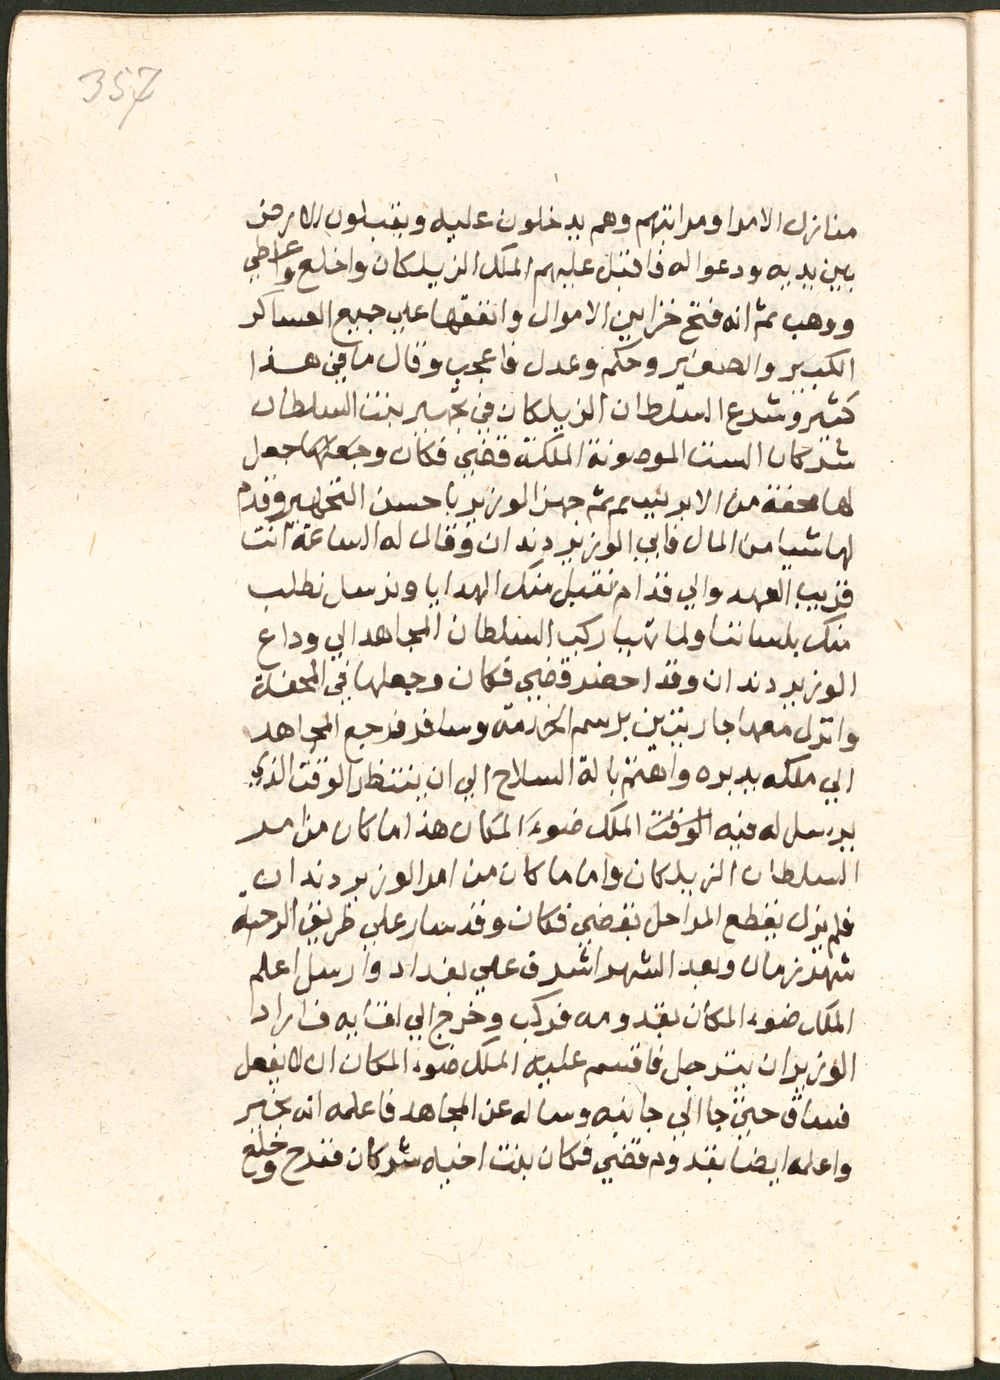 357
منازل الامرا ومراتبهم وهم يدخلون عليه ويقبلون الارض
بين يديه ودعوا له فاقبل عليهم الملك الزيلكان واخلع واعطي
ووهب ثم انه فتح خزاين الاموال وانفقها علي جميع العساكر
الكبير والصغير وحكم وعدل فاعجب وقال ما في هذا
كثير وشرع السلطان الزيلكان في تجهيز بنت السلطان
شركان الست الموصونة الملكة قضي فكان وجعلها جعل
لها محفة من الابريسم ثم جهز الوزير باحسن التجهيز وقدم
لها شيا من المال فابي الوزير دندان وقال له الساعة انت
قريب العهد والي قدام نقبل منك الهدايا ونرسل نطلب
منك بلساننا ولما تهيا ركب السلطان المجاهد الي وداع
الوزير دندان وقد احضر قضي فكان وجعلها في المحفة
وانزل معها جاريتين برسم الخدمة وسافر فرجع المجاهد
الي ملكه يدبره واهتم بالة السلاح الي ان ينتظر الوقت الذي
يرسل له فيه الوقت الملك ضوء المكان هذا ما كان من امر
السلطان الزيلكان واما ما كان من امر الوزير دندان
فلم يزل يقطع المراحل بقضي فكان وقد سار علي طريق الرحبة
شهر زمان وبعد الشهر اشرف علي بغداد وارسل اعلم
الملك ضوء المكان بقدومه فركب وخرج الي لقايه فاراد
الوزير ان يترجل فاقسم عليه الملك ضوء المكان ان لا يفعل
فساق حتي جا الي جانبه وساله عن المجاهد فاعلمه انه بخير
واعلمه ايضا بقدوم قضي فكان بنت اخيه شركان ففرح وخلع